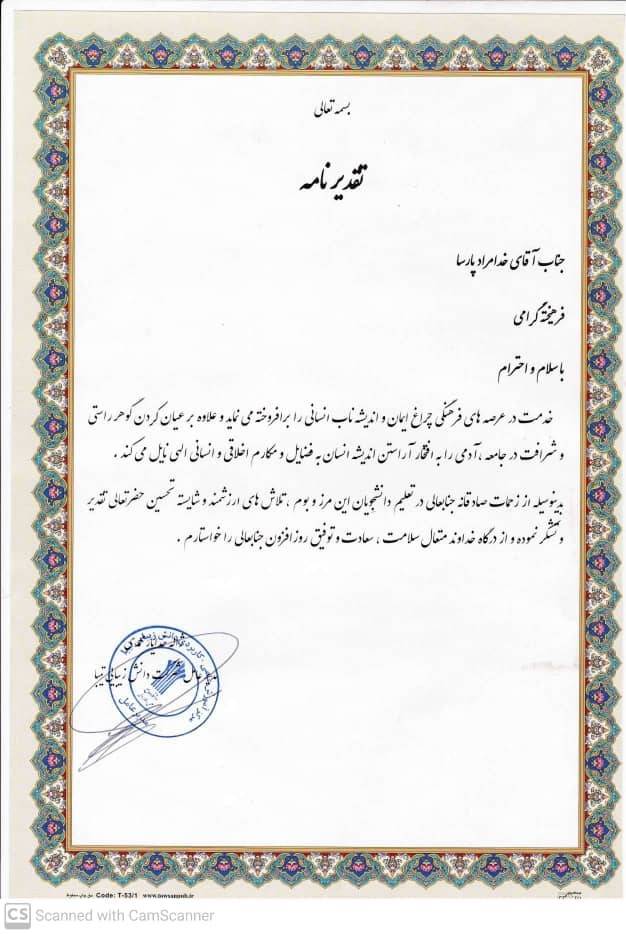 بسمه تعالی
تقدیر نامه
جناب آقای خدامراد پارسا
فرهیختهٔ گرامی
با سلام و احترام
خدمت در عرصه های فرهنگی چراغ ایمان و اندیشه ناب انسانی را برافروخته می نماید و علاوه بر عیان کردن گوهر راستی
و شرافت در جامعه ، آدمی را به افتخار آراستن اندیشه انسان به فضایل و مکارم اخلاقی و انسانی الهی نایل می کند .
بدینوسیله از زحمات صادقانه جنابعالی در تعلیم دانشجویان این مرز و بوم ، تلاش های ارزشمند و شایسته تحسین حضرتعالی تقدیر
و تشکر نموده و از درگاه خداوند متعال سلامت ، سعادت و توفیق روز افزون جنابعالی را خواستارم .
دانش زیبایی تیبا
Code: T-53/1 www.nowsannub.ir
CS Scanned with CamScanner